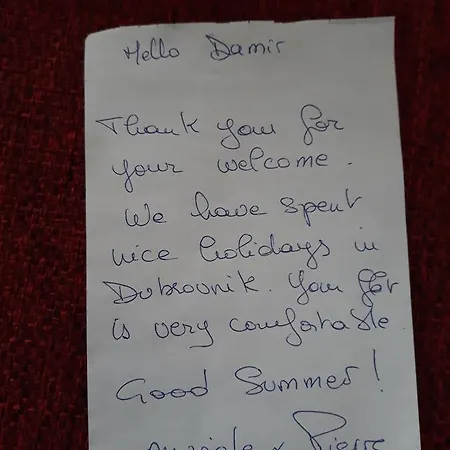 Hello Damir
Thank you for
your welcome.
We have spent
nice holidays in
Dubrovnik. Your
is very comfortable
Good Summer!
Pierre